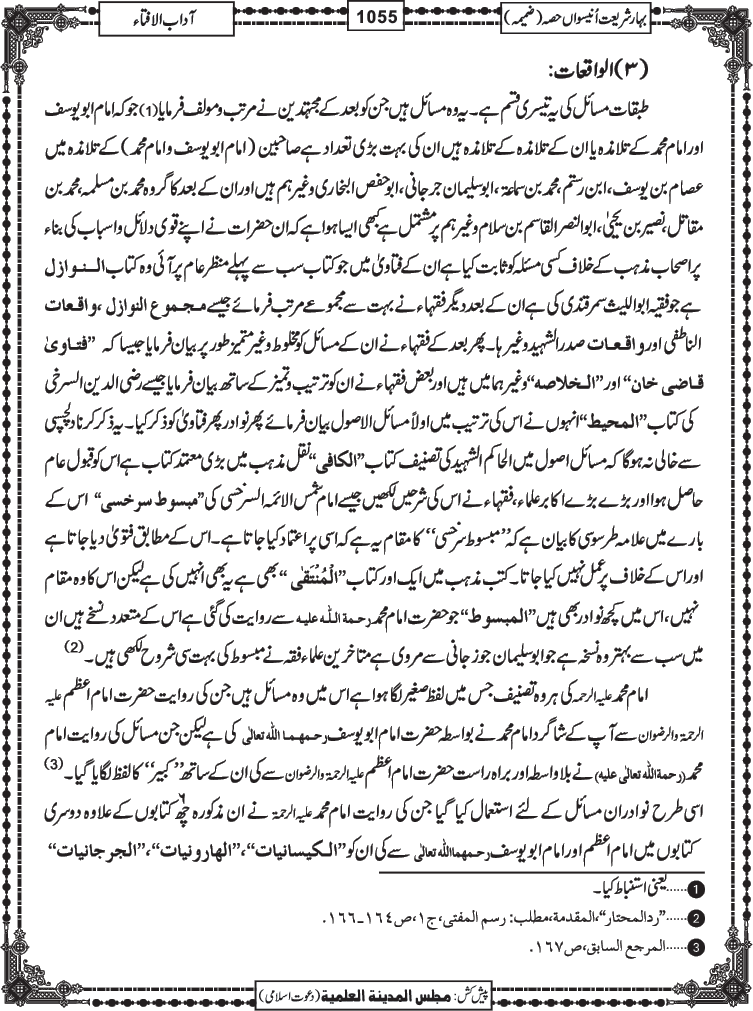 بہارِ شریعت اُنیسواں حصہ (ضمیمہ)
1055
آداب الافتاء
(۳) الواقعات:
طبقات مسائل کی یہ تیسری قسم ہے۔ یہ وہ مسائل ہیں جن کو بعد کے مجتہدین نے مرتب و مولف فرمایا (1) جو کہ امام ابو یوسف
اور امام محمد کے تلامذہ یا ان کے تلامذہ کے تلامذہ ہیں ان کی بہت بڑی تعداد ہے صاحبین (امام ابو یوسف و امام محمد) کے تلامذہ میں
عصام بن یوسف، ابن رستم، محمد بن سماعۃ، ابو سلیمان جرجانی، ابو حفص البخاری وغیرہم ہیں اور ان کے بعد کا گروہ محمد بن مسلمہ، محمد بن
مقاتل، نصیر بن یحییٰ، ابو النصر القاسم بن سلام وغیرہم پر مشتمل ہے کبھی ایسا ہوا ہے کہ ان حضرات نے اپنے قوی دلائل و اسباب کی بناء
پر اصحاب مذہب کے خلاف کسی مسئلہ کو ثابت کیا ہے ان کے فتاویٰ میں جو کتاب سب سے پہلے منظر عام پر آئی وہ کتاب النوازل
ہے جو فقیہ ابو اللیث سمرقندی کی ہے ان کے بعد دیگر فقہاء نے بہت سے مجموعے مرتب فرمائے جیسے مجموع النوازل، واقعات
الناطفی اور واقعات صدر الشہید وغیرہا۔ پھر بعد کے فقہاء نے ان کے مسائل کو مخلوط و غیر متمیز طور پر بیان فرمایا جیسا کہ ”فتاویٰ
قاضی خان“ اور ”الخلاصہ“ وغیرہما میں ہیں اور بعض فقہاء نے ان کو ترتیب و تمیز کے ساتھ بیان فرمایا جیسے رضی الدین السرخسی
کی کتاب ”المحیط“ انہوں نے اس کی ترتیب میں اولاً مسائل الاصول بیان فرمائے پھر نوادر پھر فتاویٰ کو ذکر کیا۔ یہ ذکر کرنا دلچسپی
سے خالی نہ ہوگا کہ مسائل اصول میں الحاکم الشہید کی تصنیف کتاب ”الکافی“ نقل مذہب میں بڑی معتمد کتاب ہے اس کو قبول عام
حاصل ہوا اور بڑے بڑے اکابر علماء، فقہاء نے اس کی شرحیں لکھیں جیسے امام شمس الائمہ السرخسی کی ”مبسوط سرخسی“ اس کے
بارے میں علامہ طرسوسی کا بیان ہے کہ ”مبسوط سرخسی“ کا مقام یہ ہے کہ اسی پر اعتماد کیا جاتا ہے۔ اس کے مطابق فتویٰ دیا جاتا ہے
اور اس کے خلاف پر عمل نہیں کیا جاتا۔ کتب مذہب میں ایک اور کتاب ”اَلْمُنْتَقٰی“ بھی ہے یہ بھی انہیں کی ہے لیکن اس کا وہ مقام
نہیں، اس میں کچھ نوادر بھی ہیں ”المبسوط“ جو حضرت امام محمد رحمۃ اللہ علیہ سے روایت کی گئی ہے اس کے متعدد نسخے ہیں ان
میں سب سے بہتر وہ نسخہ ہے جو ابو سلیمان جوزجانی سے مروی ہے متاخرین علماء فقہ نے مبسوط کی بہت سی شروح لکھی ہیں۔ (2)
امام محمد علیہ الرحمہ کی ہر وہ تصنیف جس میں لفظ صغیر لگا ہوا ہے اس میں وہ مسائل ہیں جن کی روایت حضرت امام اعظم علیہ
الرحمۃ والرضوان سے آپ کے شاگرد امام محمد نے بواسطہ حضرت امام ابو یوسف رحمهما الله تعالٰی کی ہے لیکن جن مسائل کی روایت امام
محمد (رحمة الله تعالٰی علیه) نے بلا واسطہ اور براہ راست حضرت امام اعظم علیہ الرحمۃ والرضوان سے کی ان کے ساتھ ”کبیر“ کا لفظ لگایا گیا۔ (3)
اسی طرح نوادر ان مسائل کے لئے استعمال کیا گیا جن کی روایت امام محمد علیہ الرحمۃ نے ان مذکورہ چھ کتابوں کے علاوہ دوسری
کتابوں میں امام اعظم اور امام ابو یوسف رحمهما الله تعالٰی سے کی ان کو ”الکیسانیات“، ”الهارونیات“، ”الجرجانیات“
1 ......یعنی استنباط کیا۔
2 ......”ردالمحتار“، المقدمة، مطلب: رسم المفتی، ج۱، ص۱٦٤۔۱٦٦.
3 ......المرجع السابق، ص۱٦۷.
پیش کش: مجلس المدینة العلمیة (دعوتِ اسلامی)